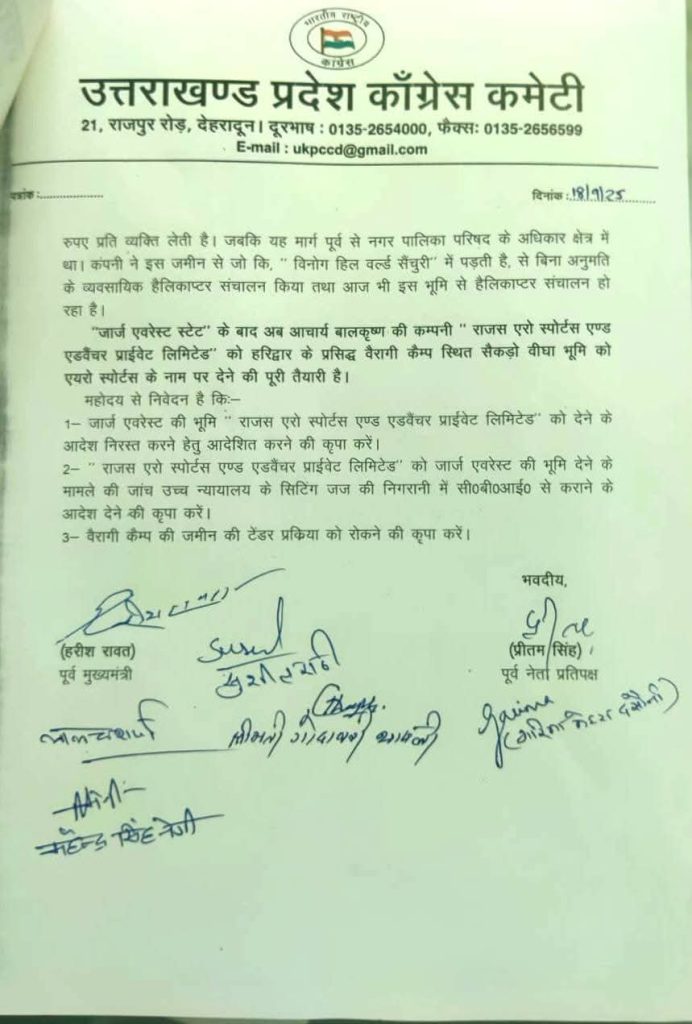 भारतीय राष्ट्रीय
काँग्रेस
उत्तराखण्ड प्रदेश काँग्रेस कमेटी
21, राजपुर रोड़, देहरादून। दूरभाष : 0135-2654000, फैक्सः 0135-2656599
E-mail : ukpccd@gmail.com
पत्रांक :.................... दिनांक :.18/9/25..........
रुपए प्रति व्यक्ति लेती है। जबकि यह मार्ग पूर्व से नगर पालिका परिषद के अधिकार क्षेत्र में
था। कंपनी ने इस जमीन से जो कि, " विनोग हिल वर्ल्ड सैंचुरी" में पड़ती है, से बिना अनुमति
के व्यवसायिक हैलिकाप्टर संचालन किया तथा आज भी इस भूमि से हैलिकाप्टर संचालन हो
रहा है।
"जार्ज एवरेस्ट स्टेट" के बाद अब आचार्य बालकृष्ण की कम्पनी " राजस एरो स्पोर्टस एण्ड
एडवैंचर प्राईवेट लिमिटेड" को हरिद्वार के प्रसिद्ध वैरागी कैम्प स्थित सैकड़ो वीघा भूमि को
एयरो स्पोर्टस के नाम पर देने की पूरी तैयारी है।
महोदय से निवेदन है कि:–
1– जार्ज एवरेस्ट की भूमि " राजस एरो स्पोर्टस एण्ड एडवैंचर प्राईवेट लिमिटेड" को देने के
आदेश निरस्त करने हेतु आदेशित करने की कृपा करें।
2– " राजस एरो स्पोर्टस एण्ड एडवैंचर प्राईवेट लिमिटेड" को जार्ज एवरेस्ट की भूमि देने के
मामले की जांच उच्च न्यायालय के सिटिंग जज की निगरानी में सी0बी0आई0 से कराने के
आदेश देने की कृपा करें।
3– वैरागी कैम्प की जमीन की टेंडर प्रकिया को रोकने की कृपा करें।
भवदीय,
(हरीश रावत)
पूर्व मुख्यमंत्री
(प्रीतम सिंह)
पूर्व नेता प्रतिपक्ष
श्रीमती गोदावरी थापली
महेन्द्र सिंह नेगी